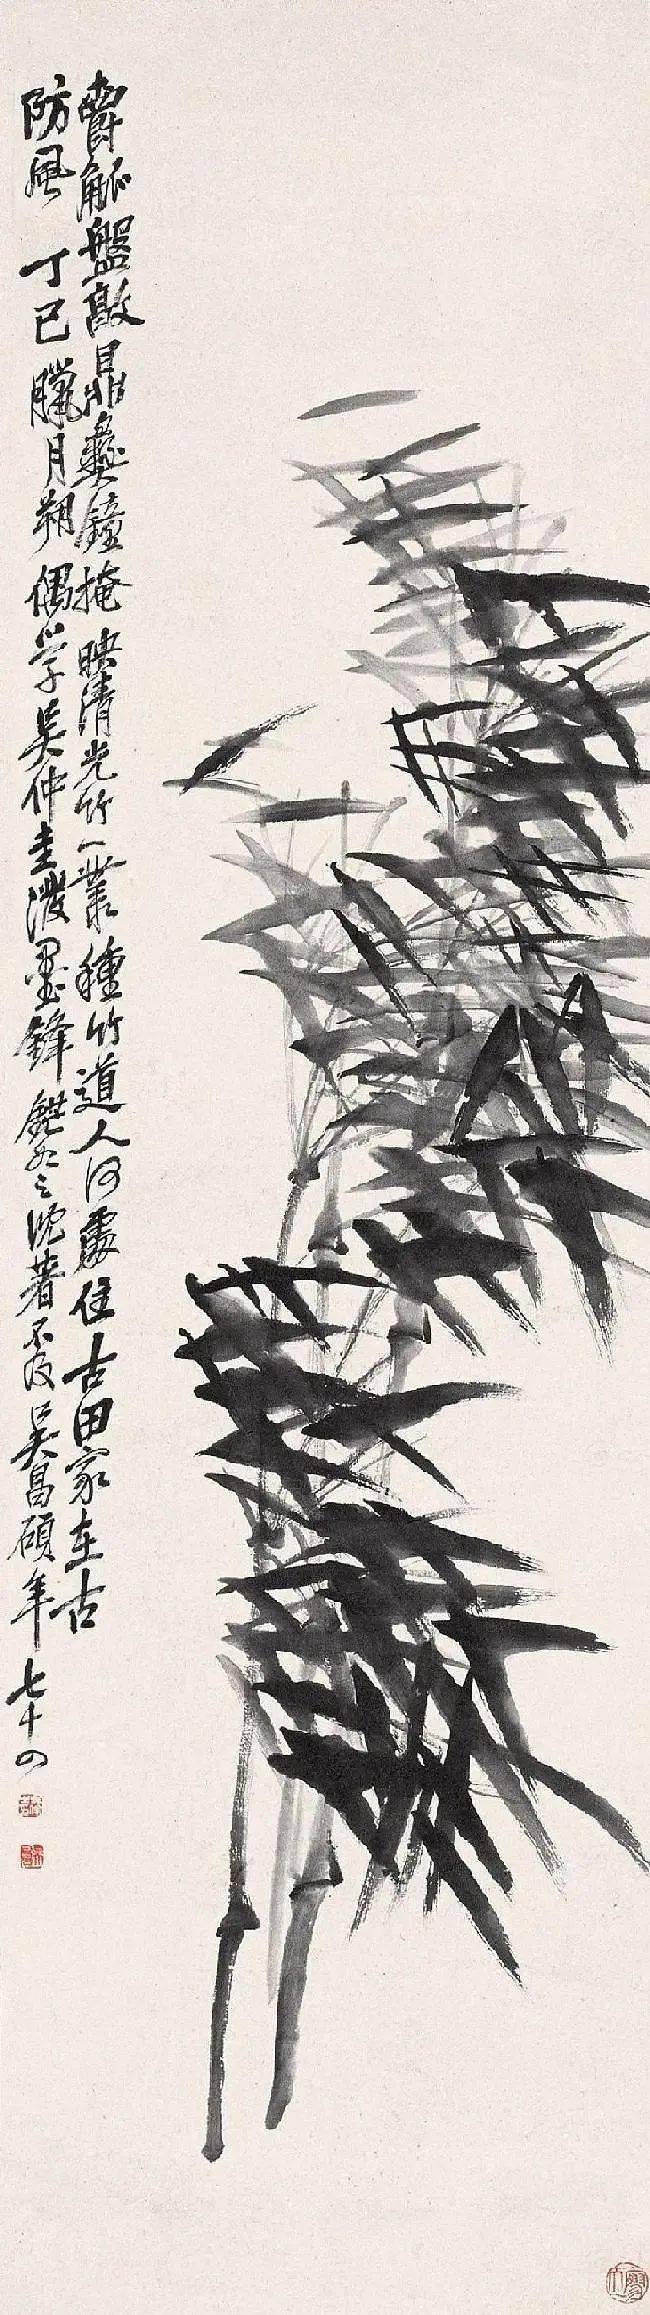 爵觚盤敦鼎彝鐘掩映清光竹一叢種竹道人何處住古田家在古
防風 丁巳臘月朔偶學吳仲圭潑墨鋒 吳昌碩年七十四